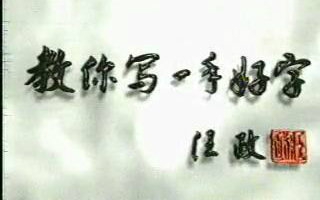 教你写一手好字
汪政